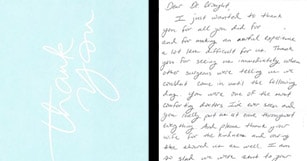 thank
you
Dear Dr
I just wanted to thank
you for all you did for
and for making an awful experience
a lot less difficult for me. Thank
you for seeing me immediately when
other surgeons were telling me we
couldn't come in until the following
day. You were one of the most
comforting doctors I've ever met and
you really put me at ease throughout
everything. And please thank your
wife for the kindness and
the as well. I am
so glad we were sent to your